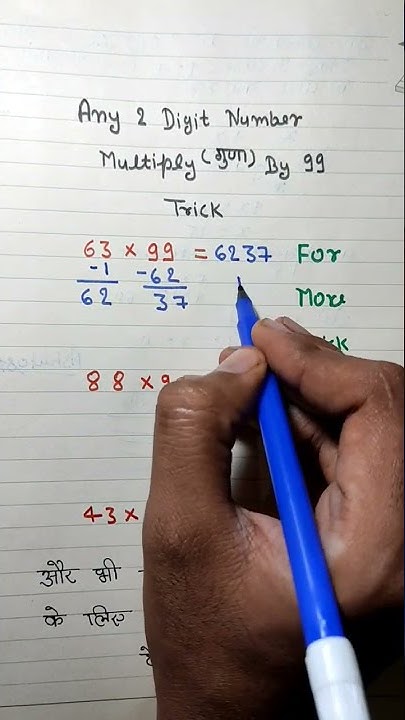 Any 2 Digit Number
Multiply (गुणा) By 99
Trick
63 × 99 = 6237 For
-1 -62
62 37 More
88 × 9
43 ×
और भी
के लिए